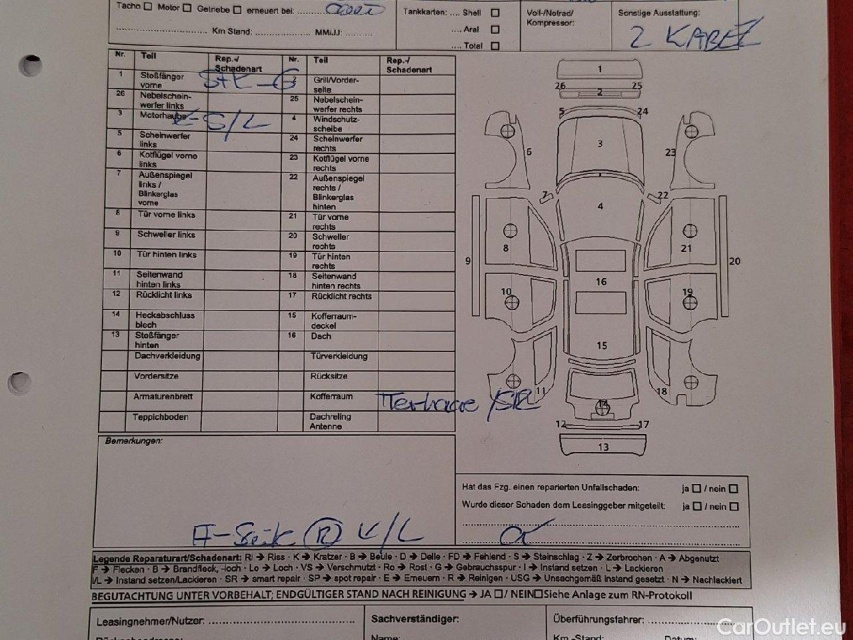 Tacho ☐ Motor ☐ Getriebe ☐ erneuert bei:
Km Stand: MM/JJ:
Tankkarten: .... Shell ☐
.... Aral ☐
.... Total ☐
Voll-/Notrad/
Kompressor:
Sonstige Ausstattung:
2 KABEL
Nr. Teil Rep.-/ Schadenart Nr. Teil Rep.-/ Schadenart
1 Stoßfänger vorne Grill/Vorder-seite
26 Nebelschein-werfer links 25 Nebelschein-werfer rechts
3 Motorhaube S/L 4 Windschutz-scheibe
5 Scheinwerfer links 24 Scheinwerfer rechts
6 Kotflügel vorne links 23 Kotflügel vorne rechts
7 Außenspiegel links / Blinkerglas vorne 22 Außenspiegel rechts / Blinkerglas hinten
8 Tür vorne links 21 Tür vorne rechts
9 Schweller links 20 Schweller rechts
10 Tür hinten links 19 Tür hinten rechts
11 Seitenwand hinten links 18 Seitenwand hinten rechts
12 Rücklicht links 17 Rücklicht rechts
14 Heckabschluss blech 15 Kofferraum-deckel
13 Stoßfänger hinten 16 Dach
Dachverkleidung Türverkleidung
Vordersitze Rücksitze
Armaturenbrett Kofferraum
Teppichboden Dachreling Antenne
1
26 2 25
5 24
6 3 23
7 22
4
8 21
9 20
16
10 19
15
11 18
14
12 17
13
Bemerkungen:
Hat das Fzg. einen reparierten Unfallschaden: ja ☐ / nein ☐
Wurde dieser Schaden dem Leasinggeber mitgeteilt: ja ☐ / nein ☐
Legende Reparaturart/Schadenart: RI → Riss · K → Kratzer · B → Beule · D → Delle · FD → Fehlend · S → Steinschlag · Z → Zerbrochen · A → Abgenutzt
F → Flecken · B → Brandfleck, -loch · Lo → Loch · VS → Verschmutzt · Ro → Rost · G → Gebrauchsspur · I → Instand setzen · L → Lackieren
I/L → Instand setzen/Lackieren · SR → smart repair · SP → spot repair · E → Erneuern · R → Reinigen · USG → Unsachgemäß instand gesetzt · N → Nachlackiert
BEGUTACHTUNG UNTER VORBEHALT; ENDGÜLTIGER STAND NACH REINIGUNG → JA ☐ / NEIN ☐ Siehe Anlage zum RN-Protokoll
Leasingnehmer/Nutzer:
Sachverständiger:
Überführungsfahrer:
Name:
Km.-Stand:
Datum:
CarOutlet.eu